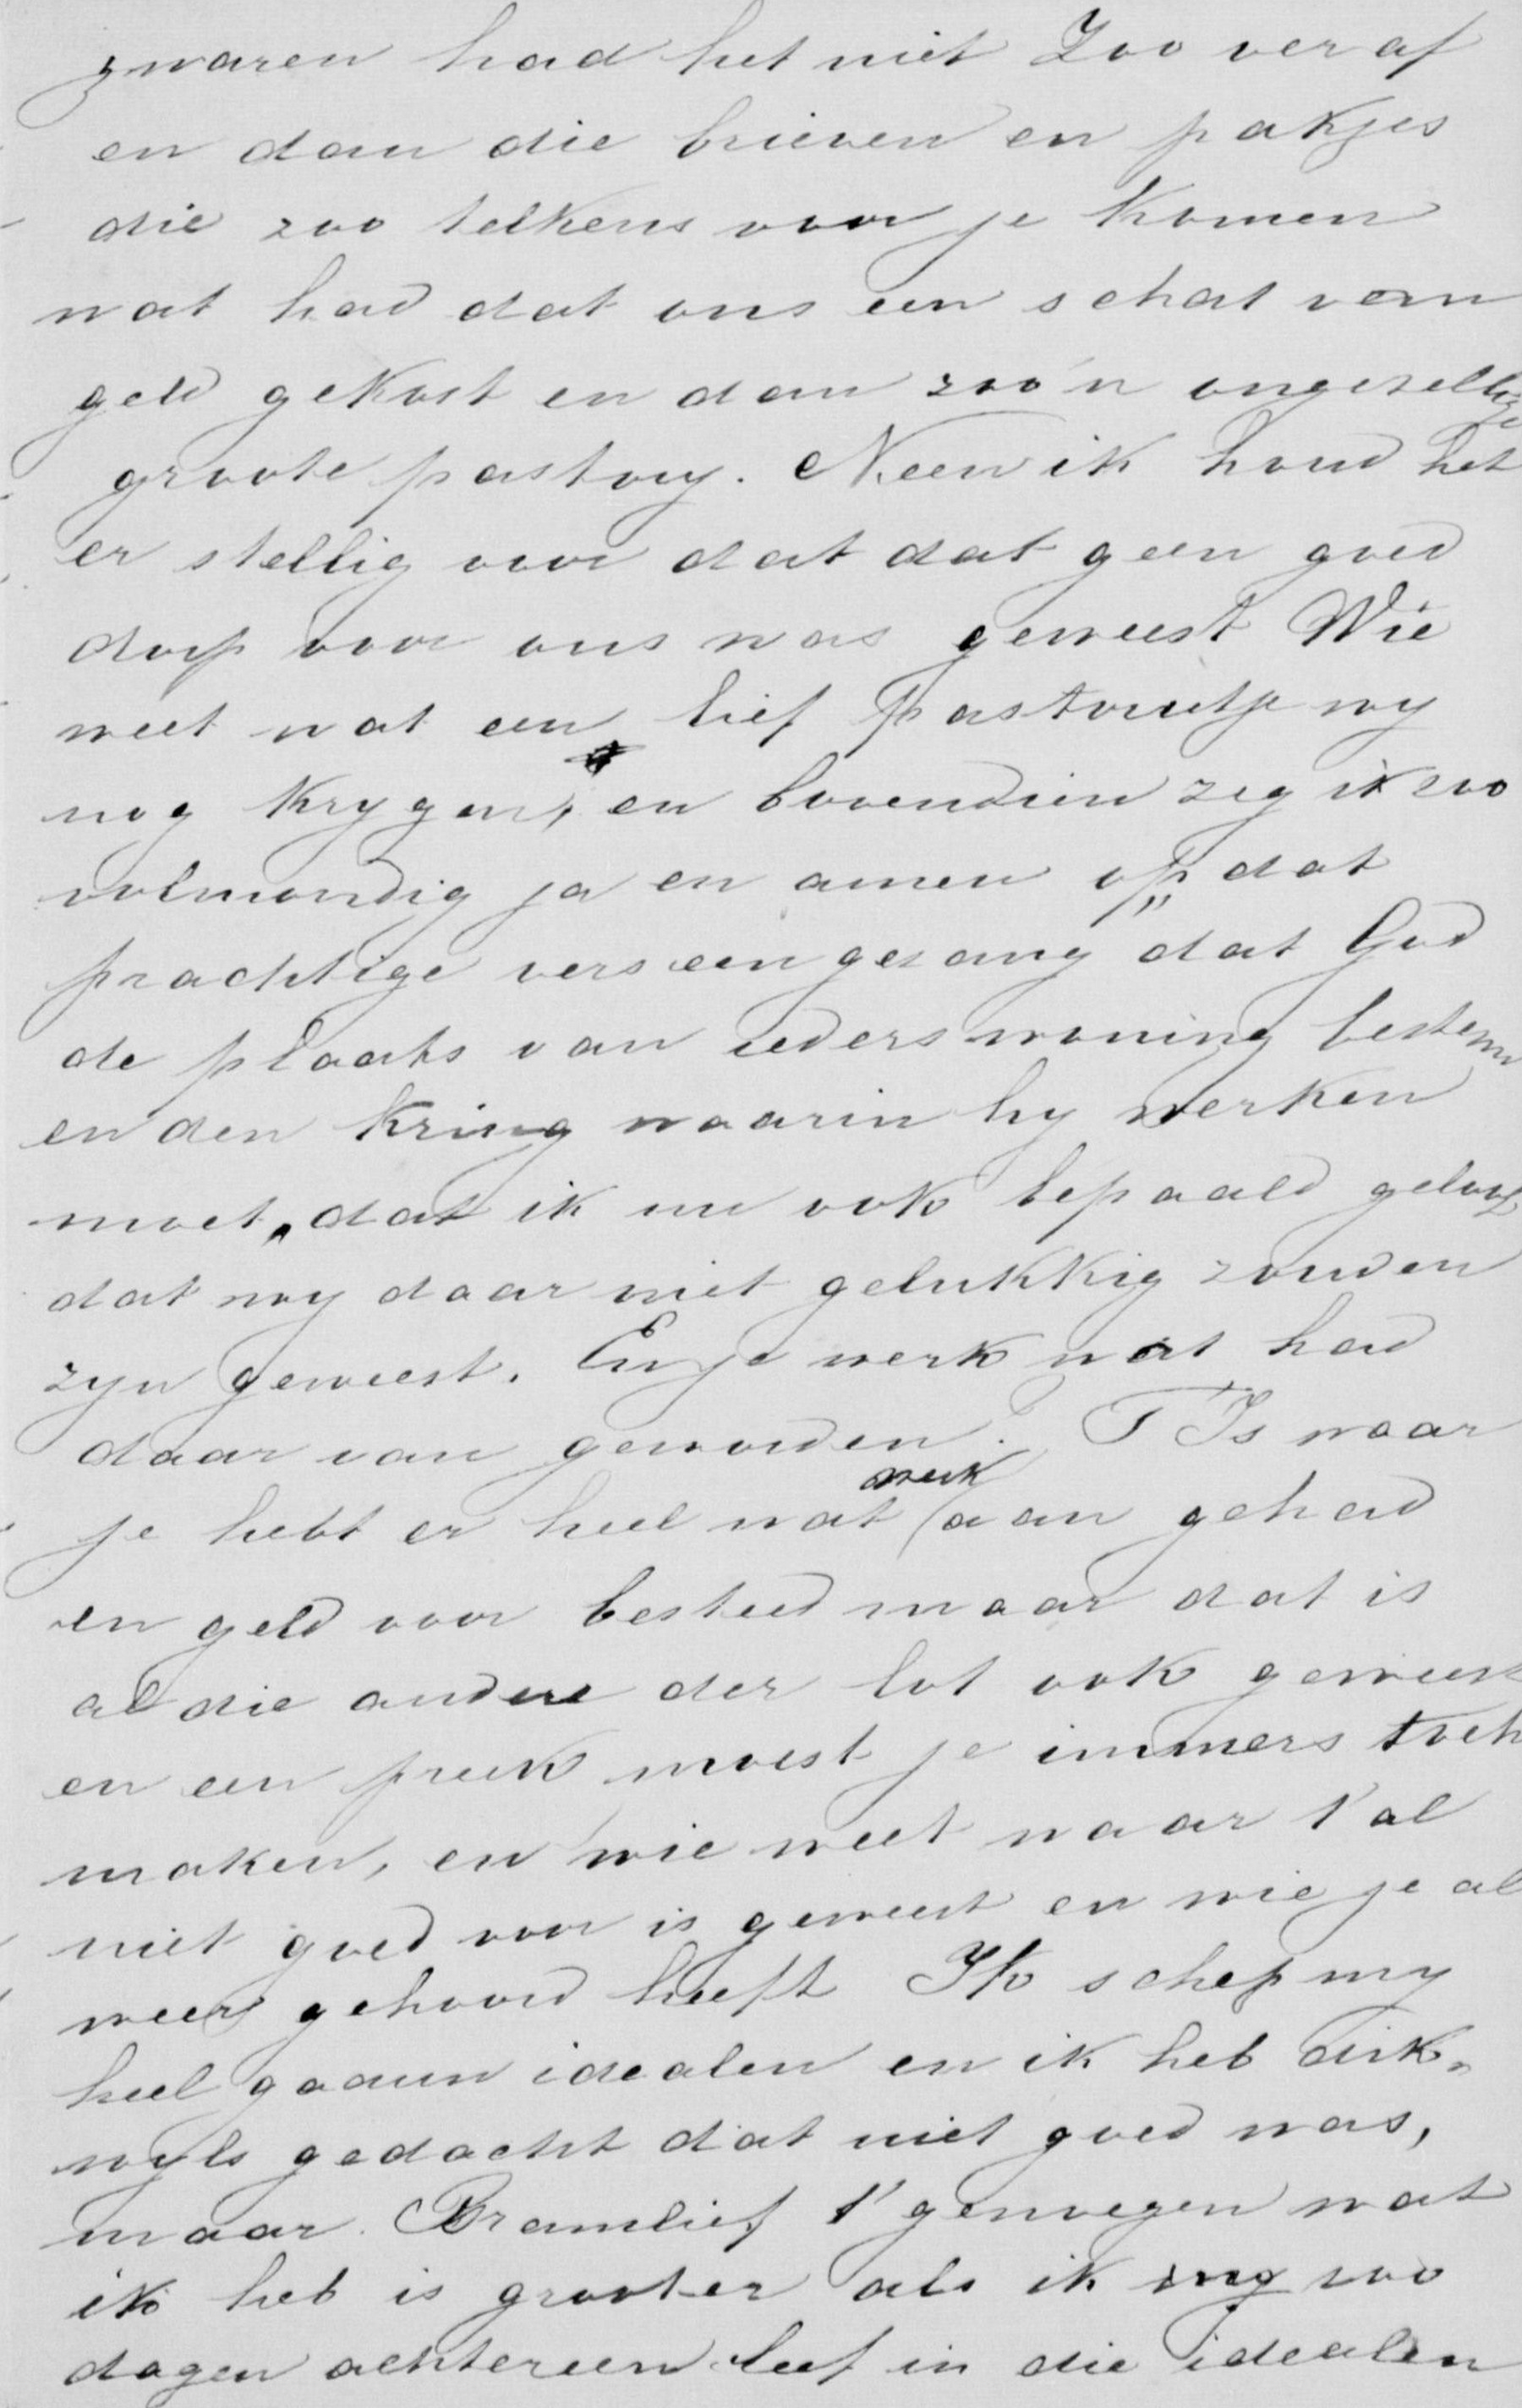 zwaren had het niet Zoo ver af
en dan die brieven en pakjes
die zoo telkens voor je komen
wat had dat ons een schat vann
geld gekost en dan zoo'n ongezellige
groote pastory. Neen ik houd het
er stellig voor dat dat geen goed
dorp voor ons was geweest Wie
weet wat een lief pastorietje wy
nog krygen, en bovendien zeg ik zoo
volmondig ja en amen op dat
prachtige vers een gezang „dat God
de plaats van ieders woning bestemd
en den Kring waarin hy werken
moet, dat ik nu ook bepaald geloof
dat wy daar niet gelukkig zouden
zyn geweest. En je werk wat had
daar van geworden? T Is waar
je hebt er heel wat werk aan gehad
en geld voor besteed maar dat is
al die andere der lot ook geweest
en een preek moest je immers toch
maken, en wie weet waar t'al
niet goed voor is geweest en wie je al
weer gehoord heeft Ik schep my
heel gaauw idealen en ik heb dik„
wyls gedacht dat niet goed was,
maar. Bramlief t'genoegen wat
ik heb is grooter als ik my zoo
dagen achtereen leef in die idealen